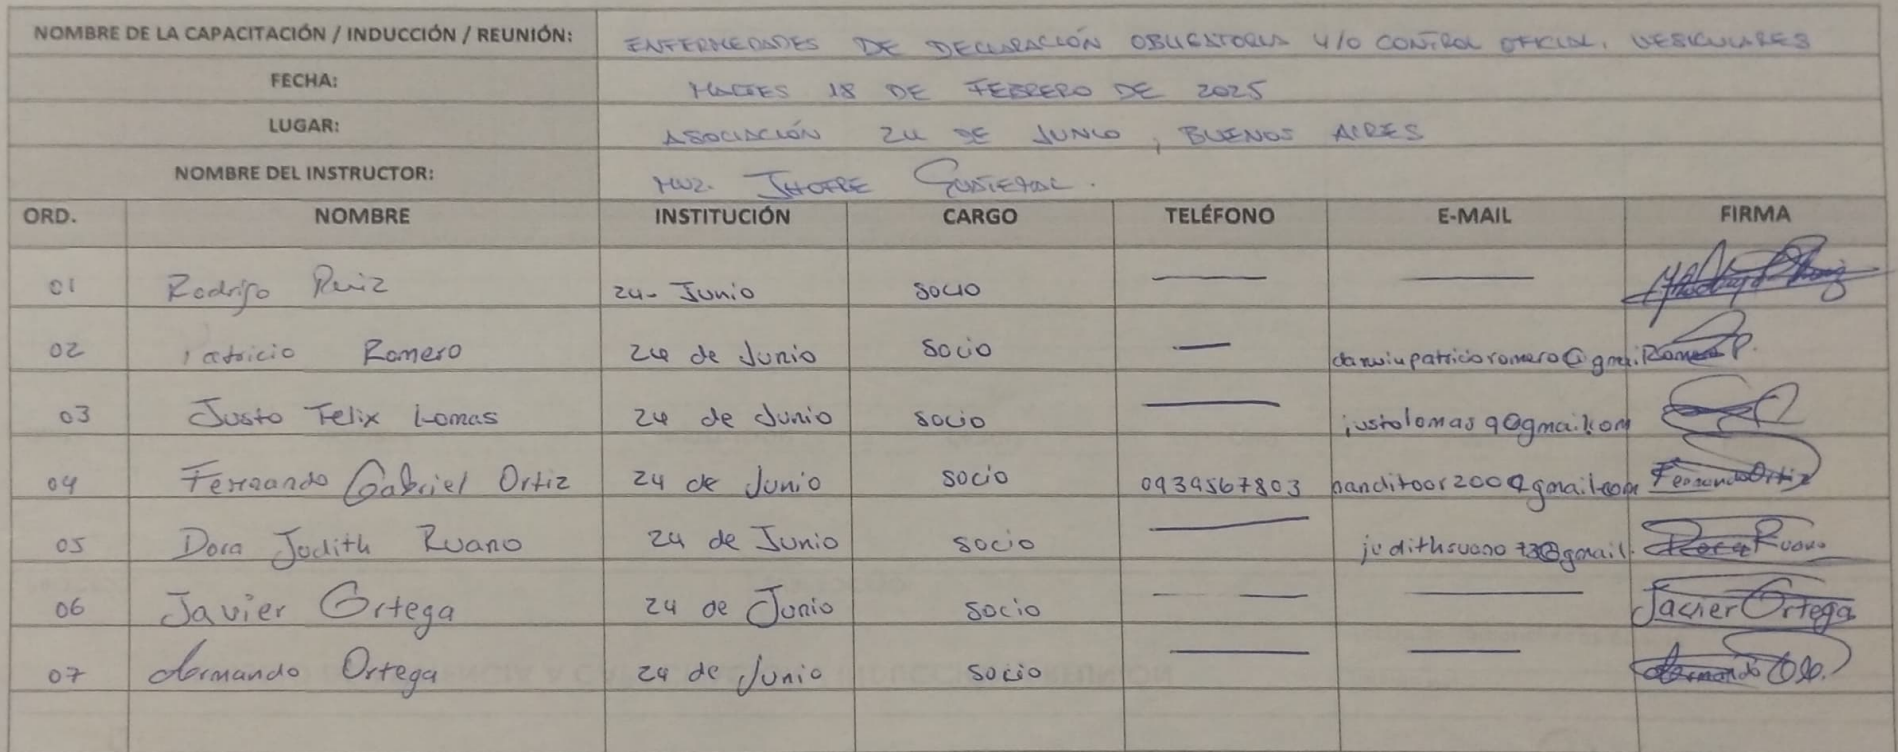 NOMBRE DE LA CAPACITACIÓN / INDUCCIÓN / REUNIÓN: ENFERMEDADES DE DECLARACIÓN OBLIGATORIA Y/O CONTROL OFICIAL. VESICULARES
FECHA: MARTES 18 DE FEBRERO DE 2025
LUGAR: ASOCIACIÓN 24 DE JUNIO, BUENOS AIRES
NOMBRE DEL INSTRUCTOR: MVZ. JHOFRE
ORD. NOMBRE INSTITUCIÓN CARGO TELÉFONO E-MAIL FIRMA
01 Rodrigo Ruiz 24- Junio socio — —
02 Patricio Romero 24 de Junio Socio — darwinpatricioromero@gmai. Romero P.
03 Justo Felix Lomas 24 de Junio socio — justolomas9@gmail.com
04 Fernando Gabriel Ortiz 24 de Junio socio 0939567803 Fernando Ortiz
05 Dora Judith Ruano 24 de Junio socio — judithruano73@gmail. Dora Ruano
06 Javier Ortega 24 de Junio socio — — Javier Ortega
07 Armando Ortega 24 de Junio socio — — Armando